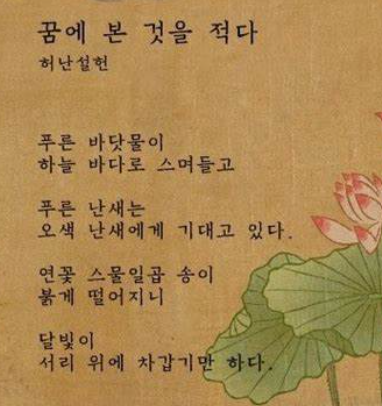 꿈에 본 것을 적다
허난설헌
푸른 바닷물이
하늘 바다로 스며들고
푸른 난새는
오색 난새에게 기대고 있다.
연꽃 스물일곱 송이
붉게 떨어지니
달빛이
서리 위에 차갑기만 하다.